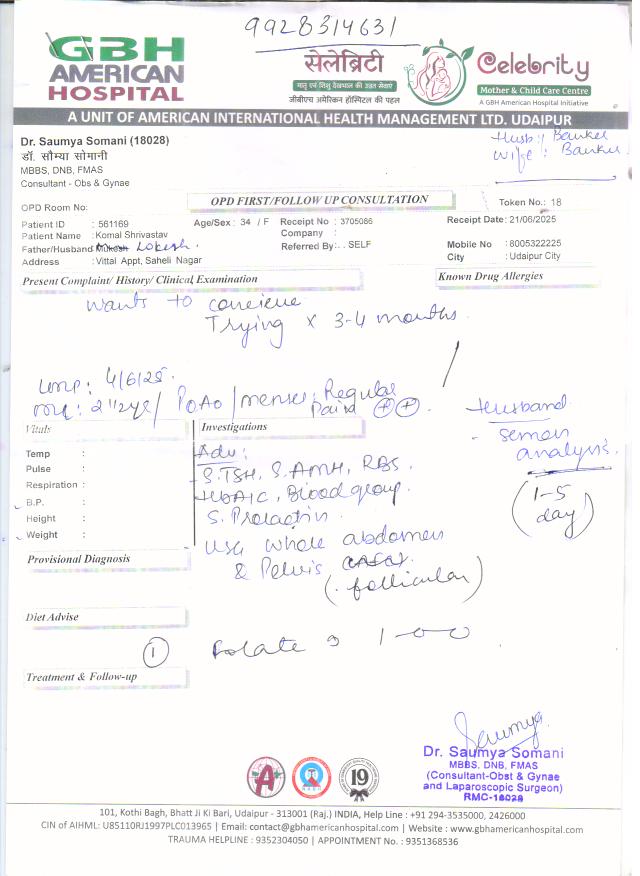 9928314631
GBH
AMERICAN
HOSPITAL
सेलेब्रिटी
मातृ एवं शिशु देखभाल की उन्नत सेवाएं
जीबीएच अमेरिकन हॉस्पिटल की पहल
Celebrity
Mother & Child Care Centre
A GBH American Hospital Initiative
A UNIT OF AMERICAN INTERNATIONAL HEALTH MANAGEMENT LTD. UDAIPUR
Dr. Saumya Somani (18028)
डॉ. सौम्या सोमानी
MBBS, DNB, FMAS
Consultant - Obs & Gynae
Husb: Banker
Wife: Banker
OPD Room No:
OPD FIRST/FOLLOW UP CONSULTATION
Token No.: 18
Patient ID : 561169 Age/Sex : 34 / F Receipt No : 3705086 Receipt Date : 21/06/2025
Patient Name : Komal Shrivastav Company :
Father/Husband Mukesh Lokesh. Referred By: . SELF Mobile No : 8005322225
Address : Vittal Appt, Saheli Nagar City : Udaipur City
Present Complaint/ History/ Clinical Examination Known Drug Allergies
Wants to conceive
Trying x 3-4 months.
LMP: 4/6/25.
ML: 2 1/2 yr / P0A0 / menses: Regular
Pain ++.
Husband
- semen
analysis.
(1-5
day)
Vitals
Temp :
Pulse :
Respiration :
B.P. :
Height :
Weight :
Investigations
Adv:
- S.TSH, S.AMH, RBS.
- HbA1C, Blood group.
S. Prolactin.
- USG whole abdomen
& Pelvis
(follicular)
Provisional Diagnosis
Diet Advise
① Folate 1-0-0
Treatment & Follow-up
Saumya
Dr. Saumya Somani
MBBS, DNB, FMAS
(Consultant-Obst & Gynae
and Laparoscopic Surgeon)
RMC-18028
A
19
101, Kothi Bagh, Bhatt Ji Ki Bari, Udaipur - 313001 (Raj.) INDIA, Help Line : +91 294-3535000, 2426000
CIN of AIHML: U85110RJ1997PLC013965 | Email: contact@gbhamericanhospital.com | Website : www.gbhamericanhospital.com
TRAUMA HELPLINE : 9352304050 | APPOINTMENT No. : 9351368536